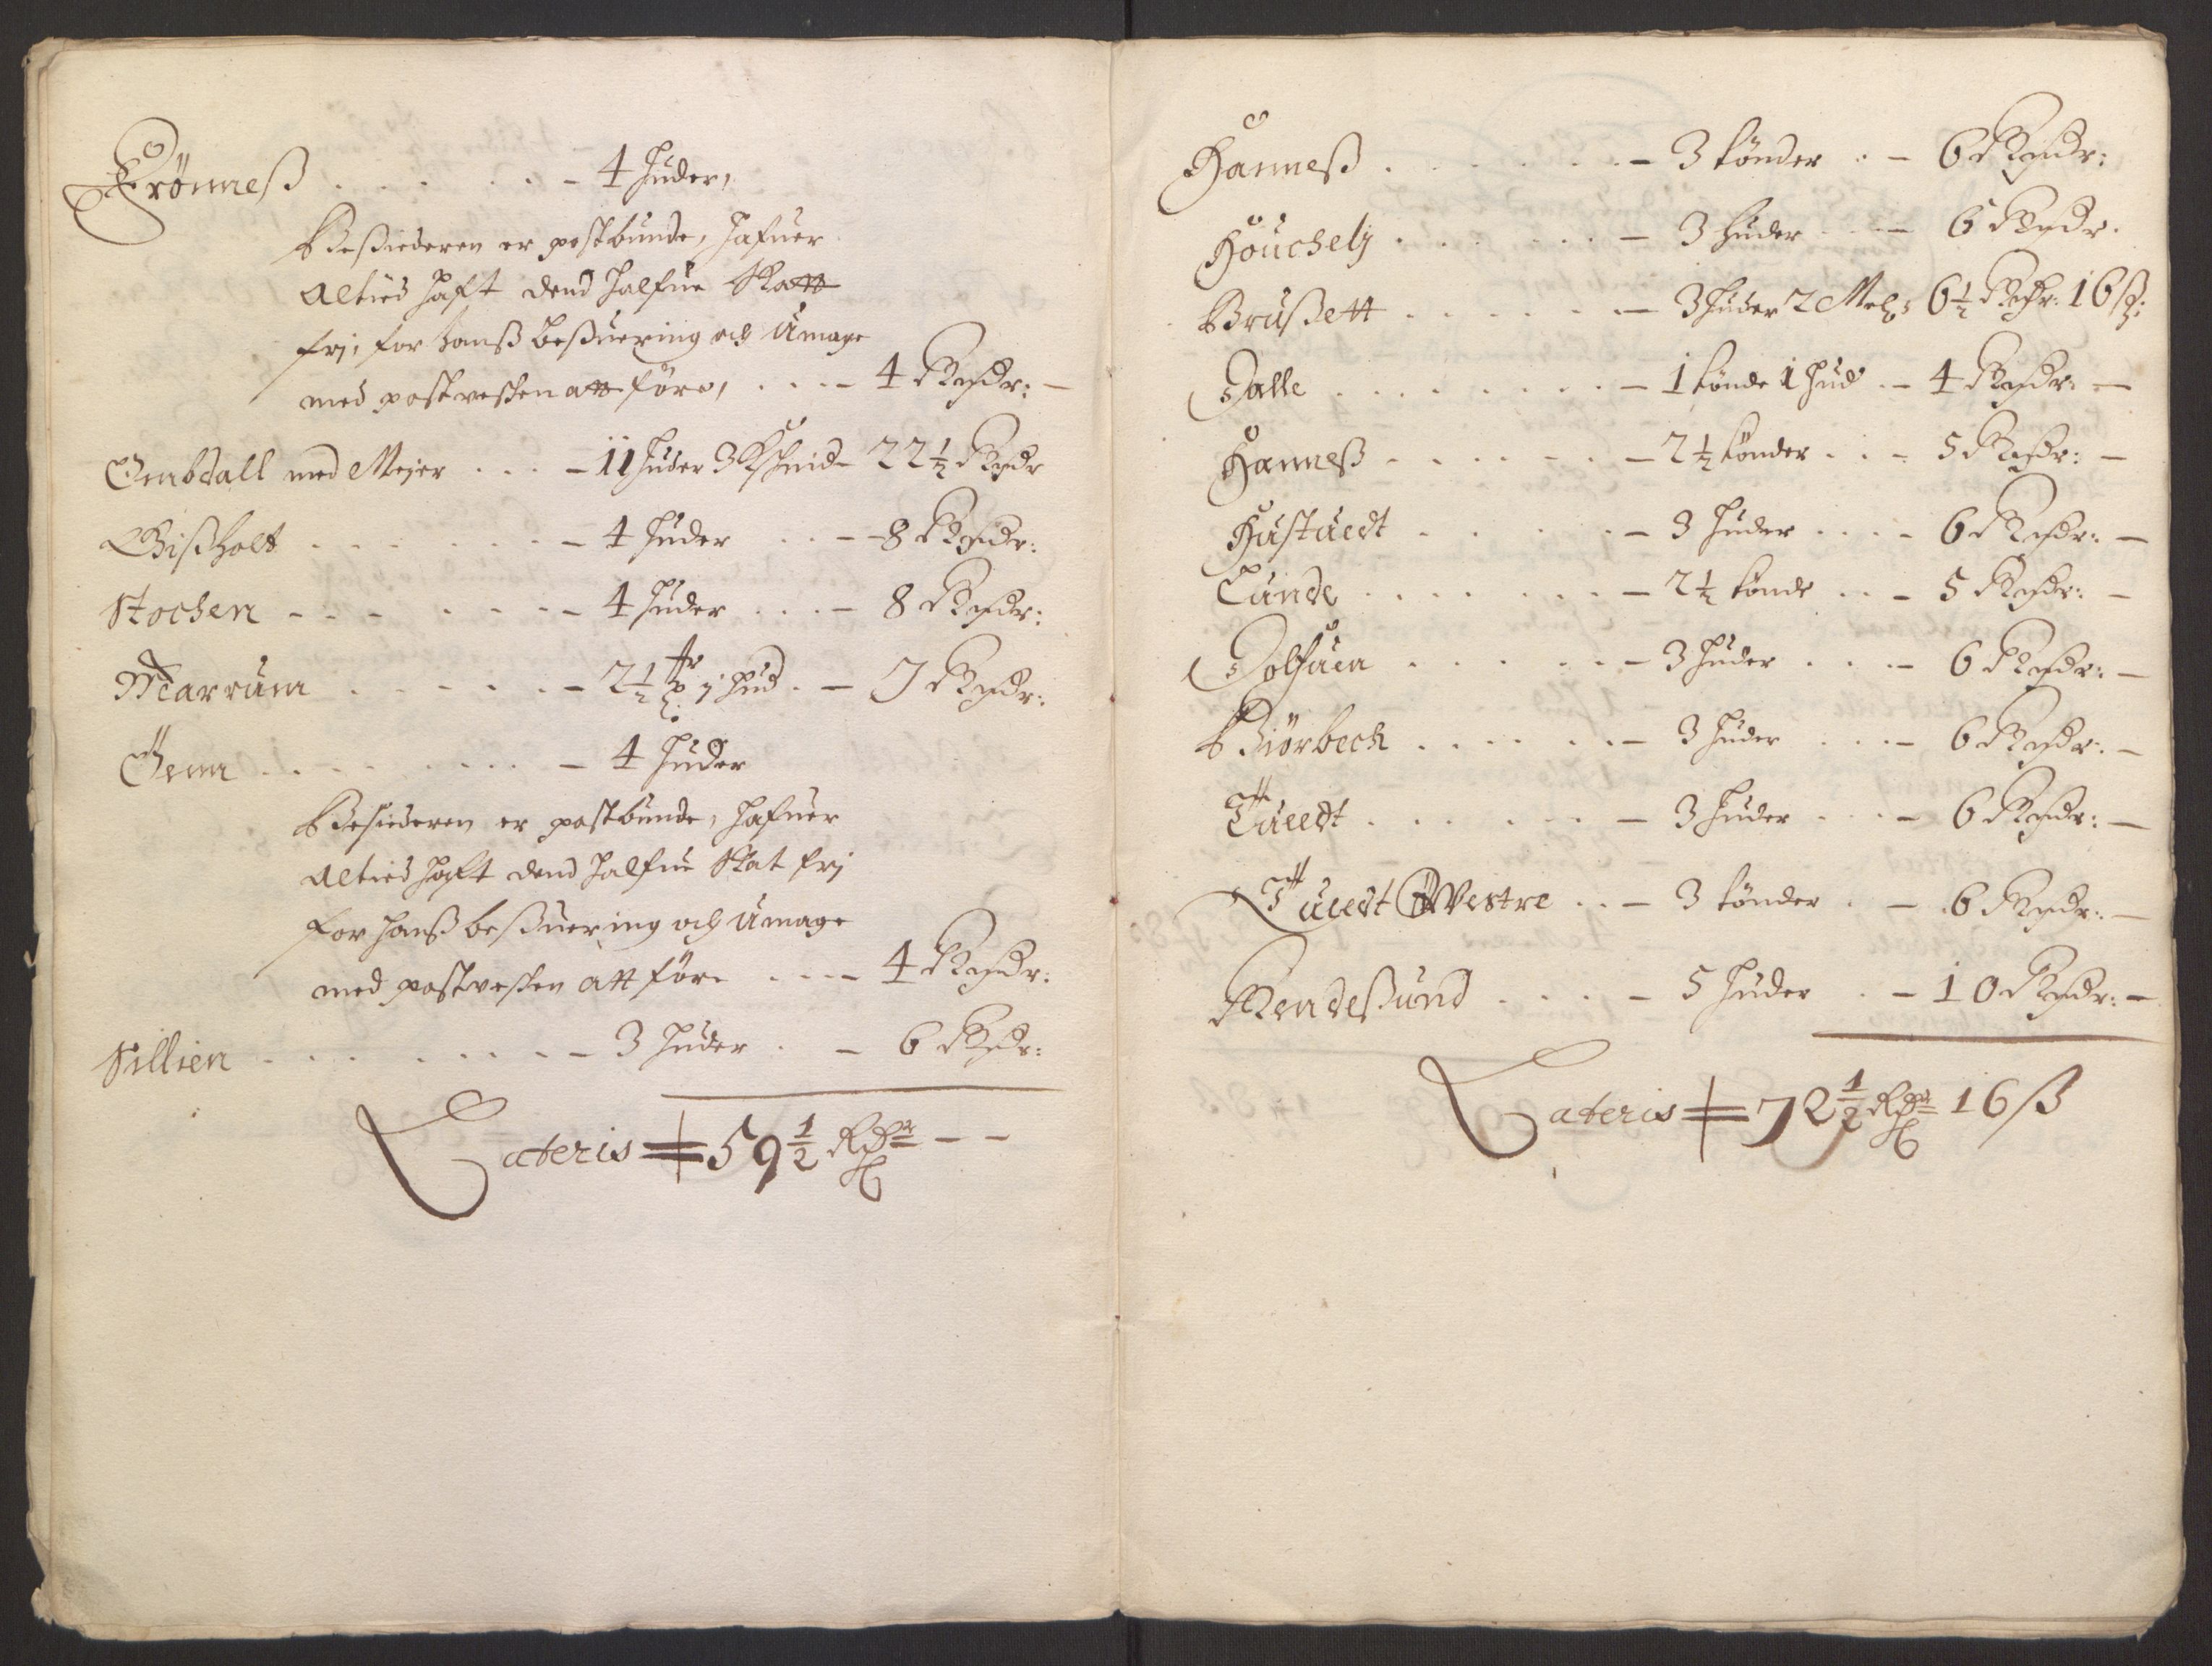 Trönneß . . . . . . - 4 huder,
Beßiederen er postbunde, hafuer
Altied hafft dend halfue Skatt
frj, for hanß beßuering och Umage
med postveßen att före, . . . - 4 Rixdr: -
Embdall med Mejer . . . - 11 huder 3 Kschind - 22½ Rixdr
Bißholt . . . . . . - 4 huder . . - 8 Rixdr:
Stochen - - - - - - - 4 huder . . . - 8 Rixdr:
Marrum . . . . . - 2½ tr j hud . - 7 Rixdr:
Jem . . . . . . . - 4 huder
Besiederen er postbunde, hafuer
Altied hafft dend halfue Skat frj
for hanß beßuering och Umage
med postveßen att före . . . - 4 Rixdr:
Sillien - . . . . . . - 3 huder . - 6 Rixdr:
Lateris = 59½ Rdr - -
Hanneß . . . . . . - 3 tönder . - 6 Rixdr:
Houchelj . . . . . . - 3 huder . . - 6 Rixdr.
Brußett . . . . . . - 3 huder 2 Mel: 6½ Rixdr: 16 ß:
Dalle . . . . . . . - 1 tönde 1 hud . - 4 Rixdr: -
Hanneß - . . . . . - 2½ tönder . . - 5 Rixdr: -
Hustuedt . . . . . - 3 huder . . . - 6 Rixdr: -
Lunde . . . . . . . - 2½ tönde . . - 5 Rixdr: -
Dolfuen . . . . . - 3 huder . . . - 6 Rixdr: -
Biörbech . . . . . - 3 huder . . . - 6 Rixdr: -
Tuedt . . . . . . - 3 huder . . . - 6 Rixdr: -
Tuedt Vestre . . - 3 tönder . - 6 Rixdr: -
Rendeßund . . . . - 5 huder . - 10 Rixdr: -
Lateris = 72½ Rdr 16 ß